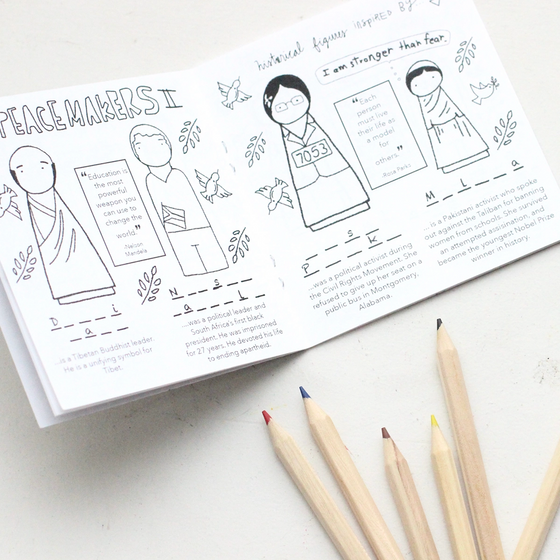 PEACEMAKERS II
“Education is
the most
powerful
weapon you
can use to
change the
world.”
-Nelson
Mandela
D _ _ _ i
_ a _ _
...is a Tibetan Buddhist leader.
He is a unifying symbol for
Tibet.
N _ _ s _ _
_ a _ _ L _
...was a political leader and
South Africa's first black
president. He was imprisoned
for 27 years. He devoted his life
to ending apartheid.
historical figures inspired by
I am stronger than fear.
7053
“Each
person
must live
their life as
a model
for
others.”
-Rosa Parks
s
P _ _ k _
...was a political activist during
the Civil Rights Movement. She
refused to give up her seat on a
public bus in Montgomery,
Alabama.
M _ l _ _ a
...is a Pakistani activist who spoke
out against the Taliban for banning
women from schools. She survived
an attempted assassination, and
became the youngest Nobel Prize
winner in history.